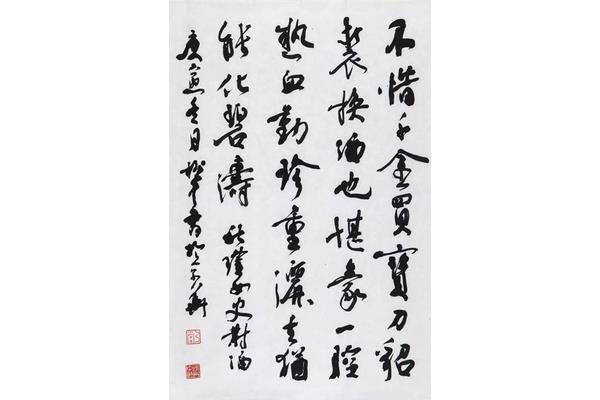 不惜千金買寶刀貂
裘換酒也堪豪一腔
熱血勤珍重灑去猶
能化碧濤 秋瑾女史對酒
庚寅冬月 書於京華